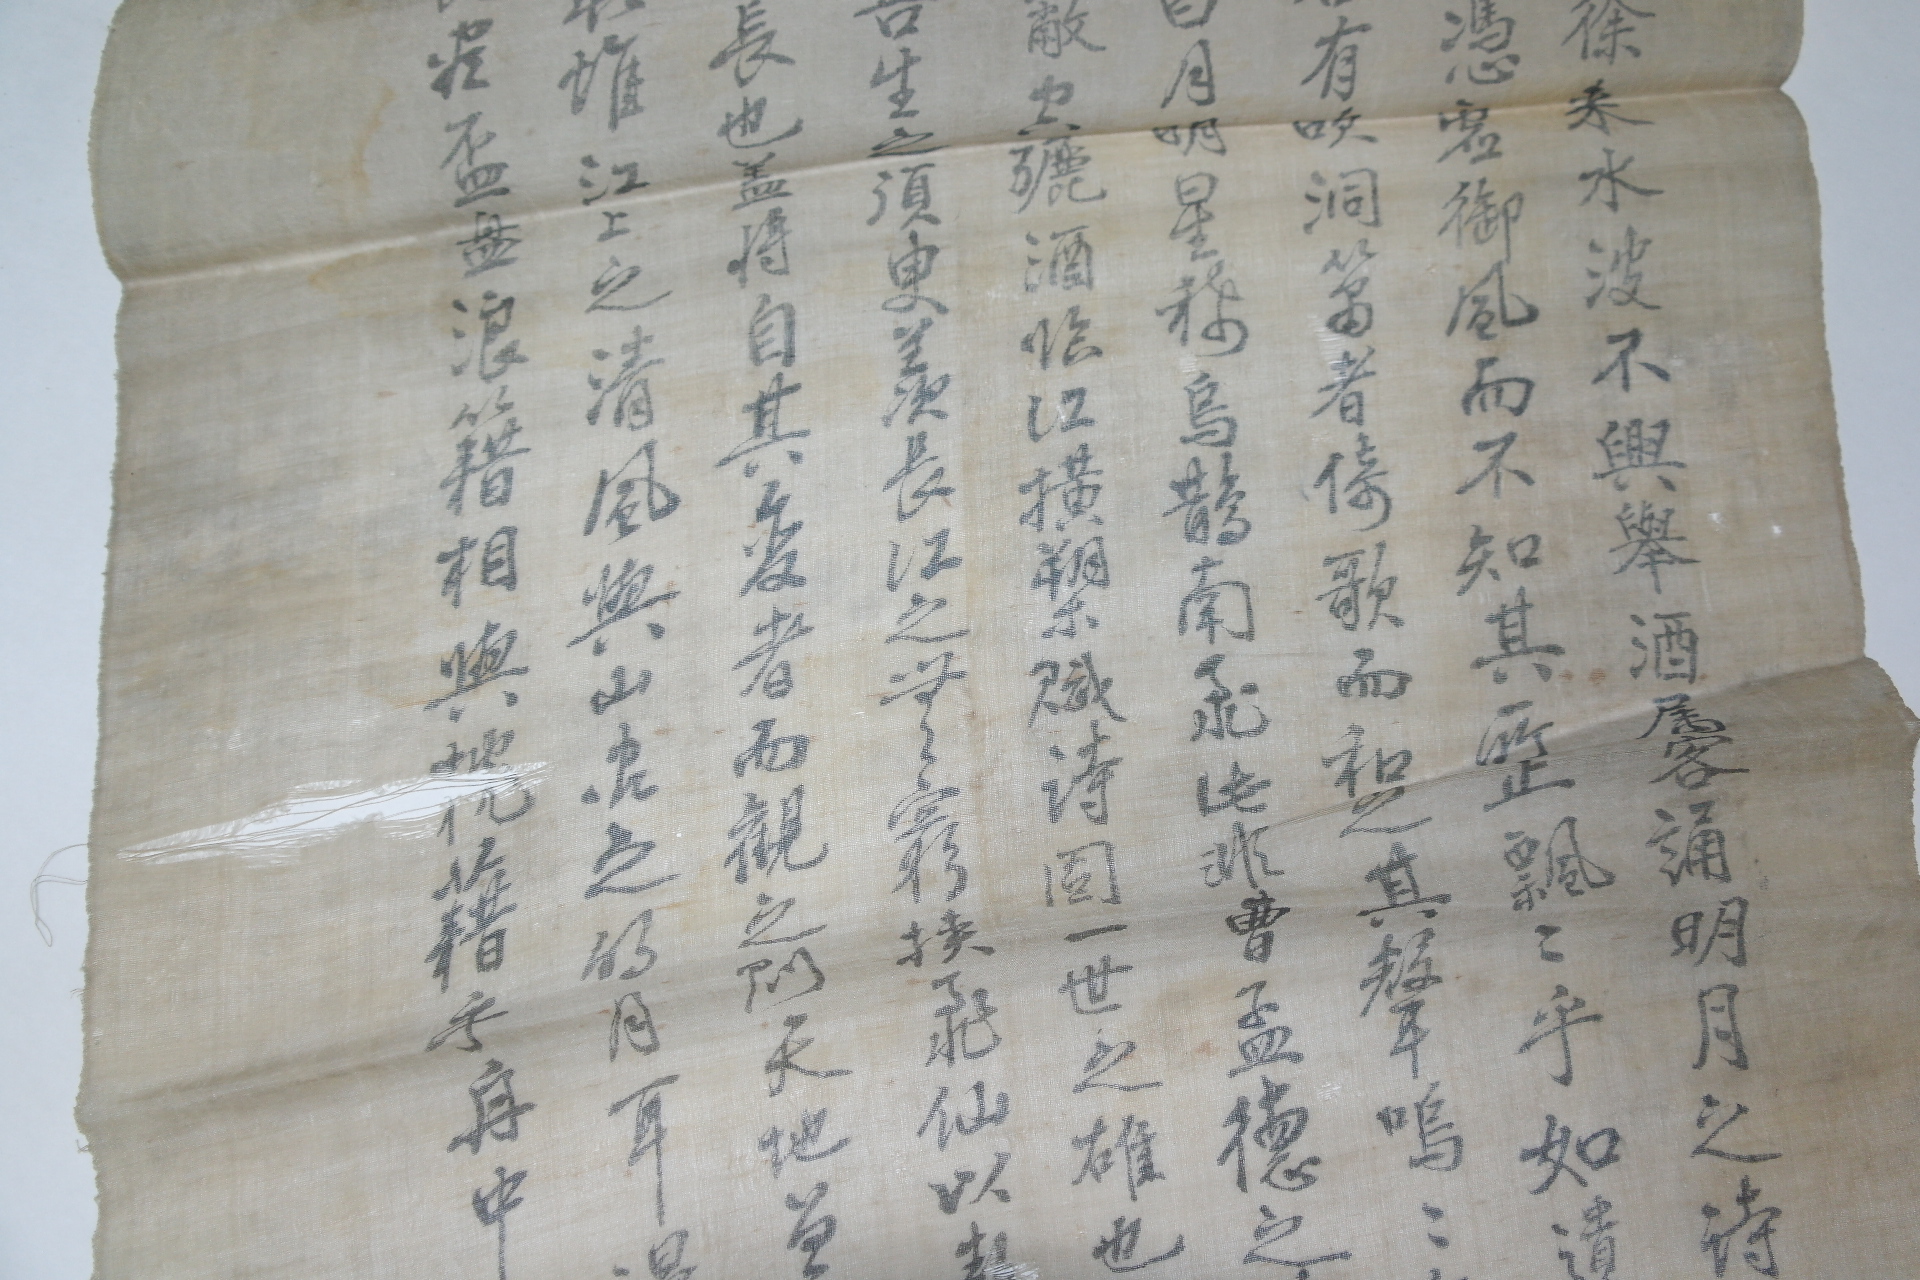 徐来水波不興舉酒属客誦明月之詩
憑虛御風而不知其所止飄〻乎如遺
有吹洞簫者倚歌而和之其聲嗚〻
曰月明星稀烏鵲南飛此非曹孟德之
蔽空釃酒临江横槊賦詩固一世之雄也
吾生之須臾羨長江之無窮挟飛仙以
長也盖将自其変者而觀之則天地曽
取惟江上之清風與山间之明月耳
盃盤浪籍相與枕藉乎舟中